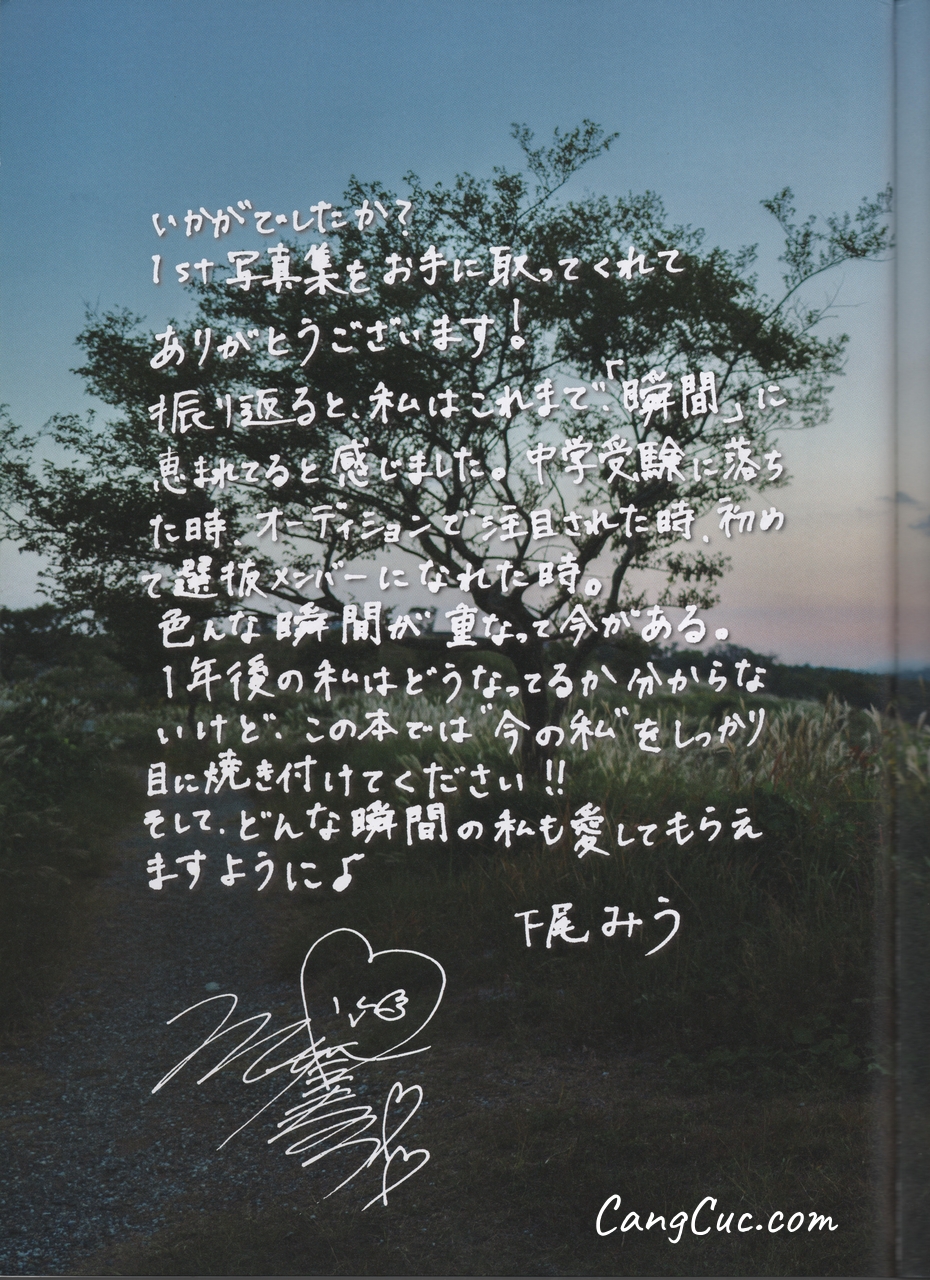 いかがでしたか?
1st写真集をお手に取ってくれて
ありがとうございます!
振り返ると、私はこれまで、「瞬間」に
恵まれてると感じました。中学受験に落ち
た時、オーディションで注目された時、初め
て選抜メンバーになれた時。
色んな瞬間が重なって今がある。
1年後の私はどうなってるか分からな
いけど、この本では"今の私"をしっかり
目に焼き付けてください!!
そして、どんな瞬間の私も愛してもらえ
ますように♪
下尾みう
CangCuc.com